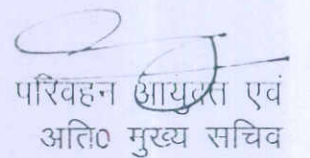 परिवहन आयुक्त एवं
अति० मुख्य सचिव